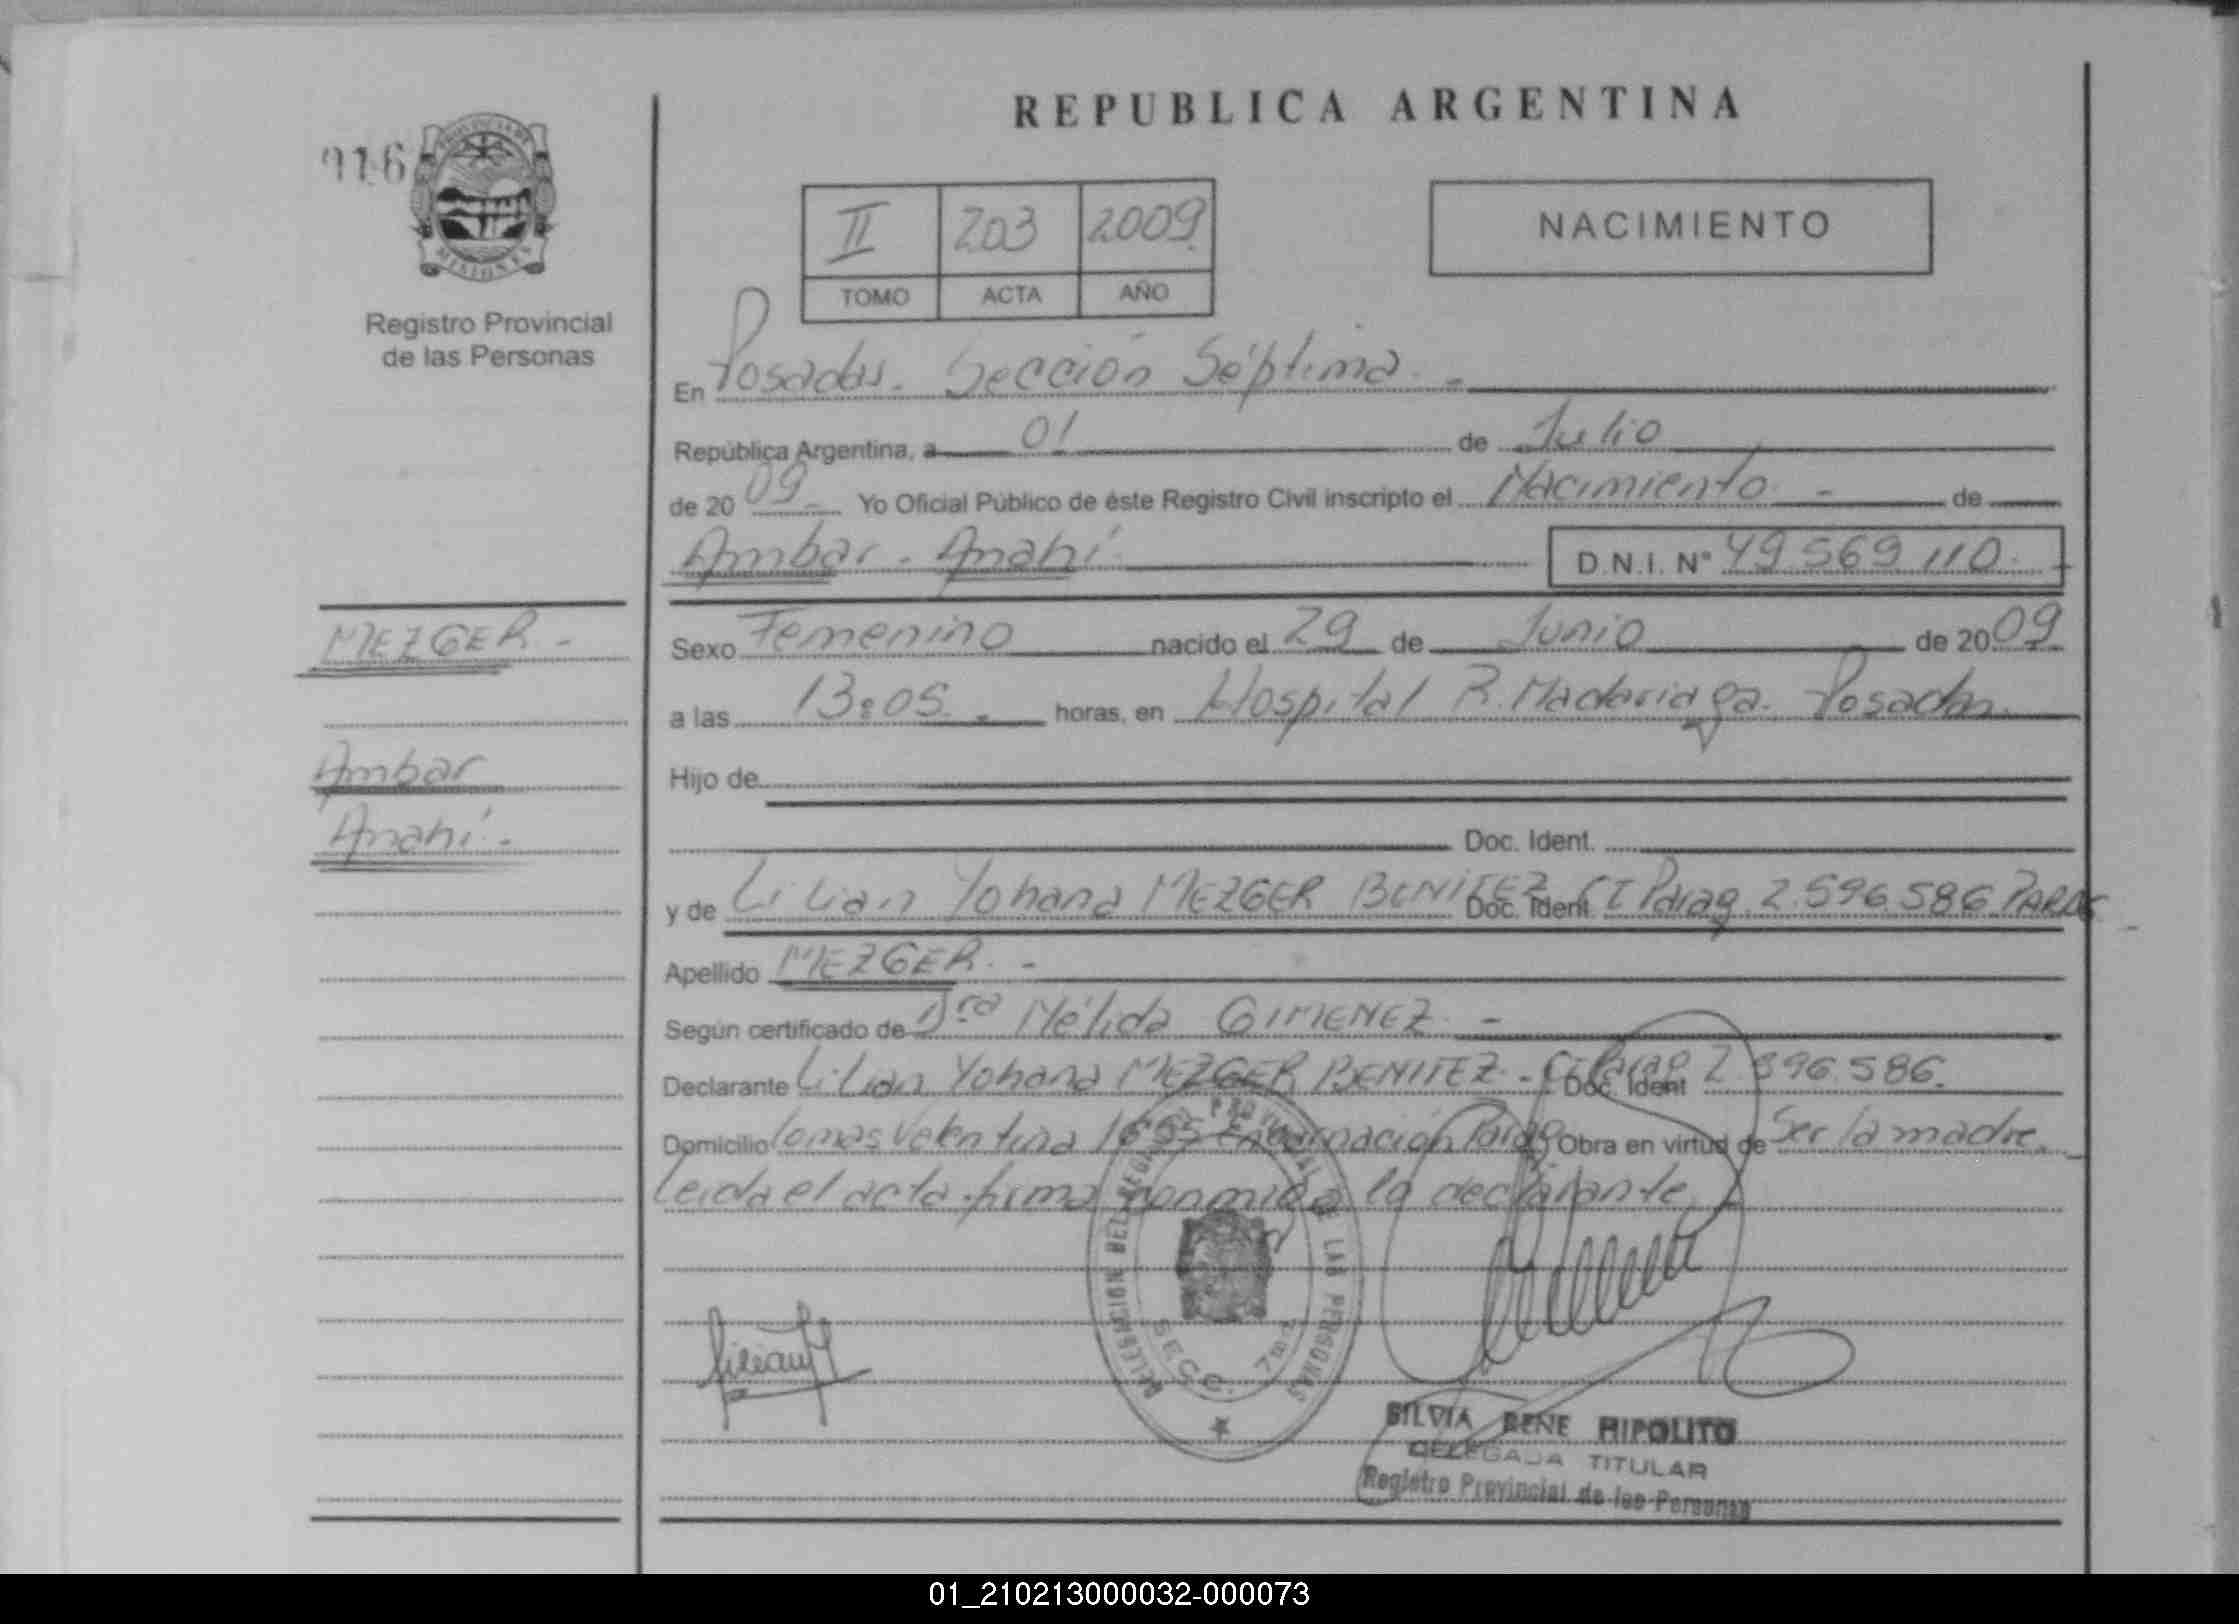 REPUBLICA ARGENTINA
916
PROVINCIA DE
MISIONES
Registro Provincial
de las Personas
II 203 2009
TOMO ACTA AÑO
NACIMIENTO
En Posadas. Sección Séptima. -
República Argentina, a 01 de Julio
de 2009 - Yo Oficial Público de éste Registro Civil inscripto el Nacimiento - de
Ambar - Anahí D.N.I. N° 49.569.110.
MEZGER -
Ambar
Anahí -
Sexo Femenino nacido el 29 de Junio de 2009
a las 13:05 - horas, en Hospital R. Madariaga. Posadas.
Hijo de
Doc. Ident.
y de Lilian Yohana MEZGER BENITEZ Doc. Ident. CI Parag 2.596.586 PARAG
Apellido MEZGER. -
Según certificado de Dra Nélida GIMENEZ -
Declarante Lilian Yohana MEZGER BENITEZ - CI Parag Doc. Ident 2.596.586.
Domicilio Lomas Valentina 1655 Encarnación Parag Obra en virtud de Ser la madre.
Leida el acta firma conmigo la declarante
DELEGACION DEL REGISTRO PROVINCIAL DE LAS PERSONAS
SECC. 7ma
Lilian
SILVIA RENE HIPOLITO
DELEGADA TITULAR
Registro Provincial de las Personas
01_210213000032-000073